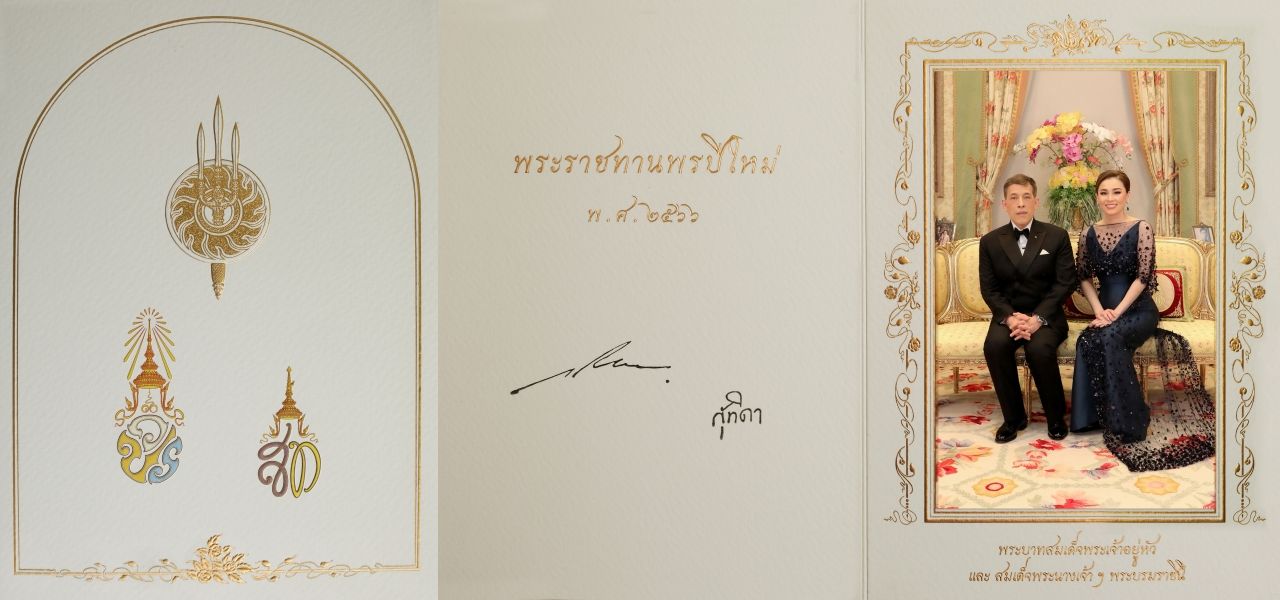 พระราชทานพรปีใหม่
พ.ศ.๒๕๖๖
สุทิดา
พระบาทสมเด็จพระเจ้าอยู่หัว
และ สมเด็จพระนางเจ้า ฯ พระบรมราชินี